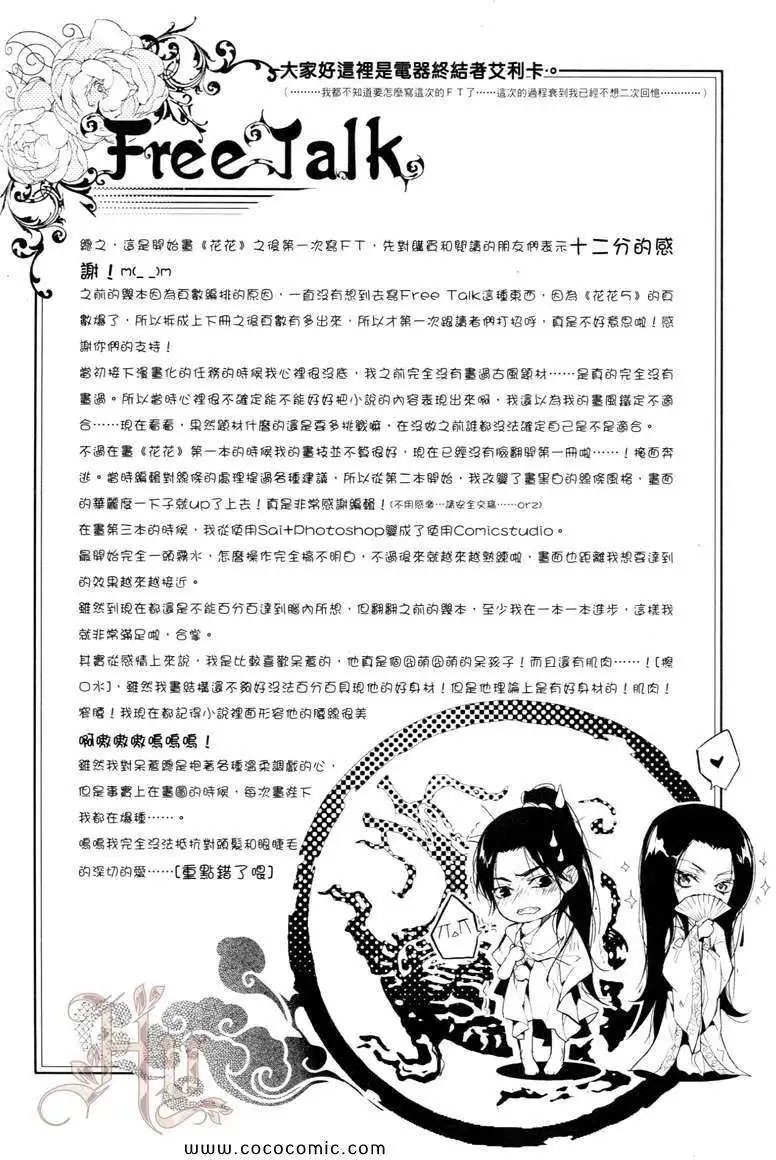 大家好這裡是電器終結者艾利卡。
(………我都不知道要怎麼寫這次的FT了……這次的過程衰到我已經不想二次回憶…………)
Free Talk
總之，這是開始畫《花花》之後第一次寫FT，先對購買和閱讀的朋友們表示十二分的感
謝！m(_ _)m
之前的幾本因為頁數編排的原因，一直沒有想到去寫Free Talk這種東西，因為《花花5》的頁
數爆了，所以拆成上下冊之後頁數有多出來，所以才第一次跟讀者們打招呼，真是不好意思啦！感
謝你們的支持！
當初接下漫畫化的任務的時候我心裡很沒底，我之前完全沒有畫過古風題材……是真的完全沒有
畫過。所以當時心裡很不確定能不能好好把小說的內容表現出來啊，我還以為我的畫風鐵定不適
合……現在看看，果然題材什麼的還是要多挑戰嘛，在沒做之前誰都沒法確定自己是不是適合。
不過在畫《花花》第一本的時候我的畫技並不算很好，現在已經沒有臉翻開第一冊啦……！掩面奔
逃。當時編輯對線條的處理提過各種建議，所以從第二本開始，我改變了畫黑白的線條風格，畫面
的華麗度一下子就up了上去！真是非常感謝編輯！(不用感謝…請安全交稿……orz)
在畫第三本的時候，我從使用Sai+Photoshop變成了使用Comicstudio。
最開始完全一頭霧水，怎麼操作完全搞不明白，不過後來就越來越熟練啦，畫面也距離我想要達到
的效果越來越接近。
雖然到現在都還是不能百分百達到腦內所想，但翻翻之前的幾本，至少我在一本一本進步，這樣我
就非常滿足啦，合掌。
其實從感情上來說，我是比較喜歡呆蒼的，他真是個囧萌囧萌的呆孩子！而且還有肌肉……！[擦
口水]，雖然我畫結構還不夠好沒法百分百具現他的好身材！但是他理論上是有好身材的！肌肉！
窄腰！我現在都記得小說裡面形容他的腰線很美
啊嗷嗷嗷嗚嗚嗚！
雖然我對呆蒼總是抱著各種溫柔調戲的心，
但是事實上在畫圖的時候，每次畫陛下
我都在爆種……。
嗚嗚我完全沒法抵抗對頭髮和眼睫毛
的深切的愛……[重點錯了喂]
♥
TT△TT
www.cococomic.com